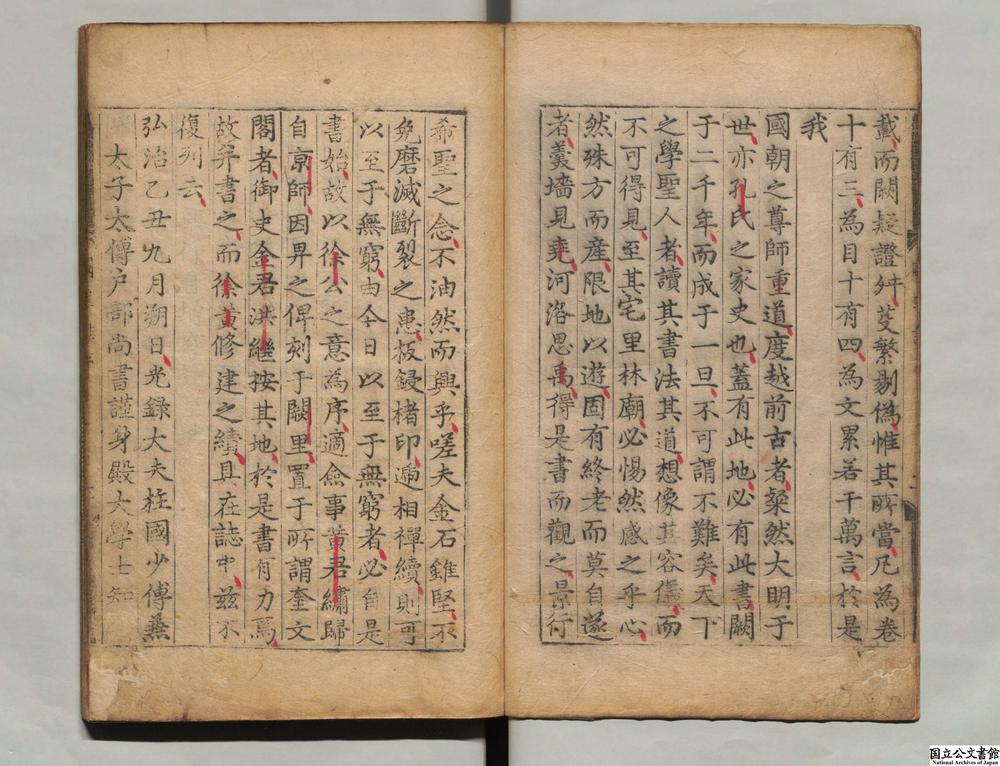 載而闕疑證舛芟繁剔偽惟其所當凡為卷
十有三為目十有四為文累若干萬言於是
我
國朝之尊師重道度越前古者粲然大明于
世亦孔氏之家史也蓋有此地必有此書闕
于二千年而成于一旦不可謂不難矣天下
之學聖人者讀其書法其道想像其容儀而
不可得見至其宅里林廟必惕然感之乎心
然殊方而産限地以遊固有終老而莫自遂
者羹墻見堯河洛思禹得是書而觀之景行
希聖之念不油然而興乎嗟夫金石雖堅不
免磨滅斷裂之患板鋟楮印遞相禪續則可
以至于無窮由今日以至于無窮者必自是
書始故以徐公之意為序適僉事黄君繡歸
自京師因畀之俾刻于闕里置于所謂奎文
閣者御史金君洪繼按其地於是書有力焉
故并書之而徐黄修建之績具在誌中兹不
復列云
弘治乙丑九月朔日光録大夫柱國少傅兼
太子太傅户部尚書謹身殿大學士知
国立公文書館
National Archives of Japan